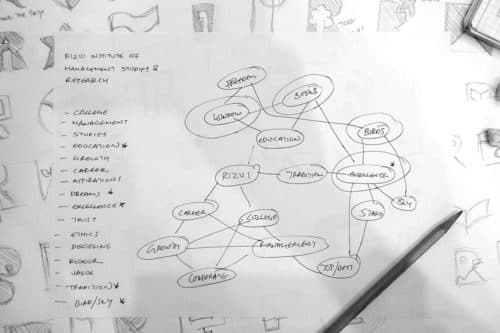 RIZVI INSTITUTE OF
MANAGEMENT STUDIES &
RESEARCH
- COLLEGE
- MANAGEMENT
- STUDIES
- EDUCATION *
- GROWTH
- CAREER
- ASPIRATIONS
- DREAMS *
- EXCELLENCE *
- TRUST
- ETHICS
- RIGOUR
- VALUE
- TRADITION *
- BIRD/SKY *
FREEDOM
BOOKS
WINDOW
EDUCATION
BIRDS
RIZVI
TRADITION
EXCELLENCE *
SKY
STARS
CAREER
COLLEGE
GROWTH
MANAGEMENT
CORPORATE
TOP/BEST
THE SKY